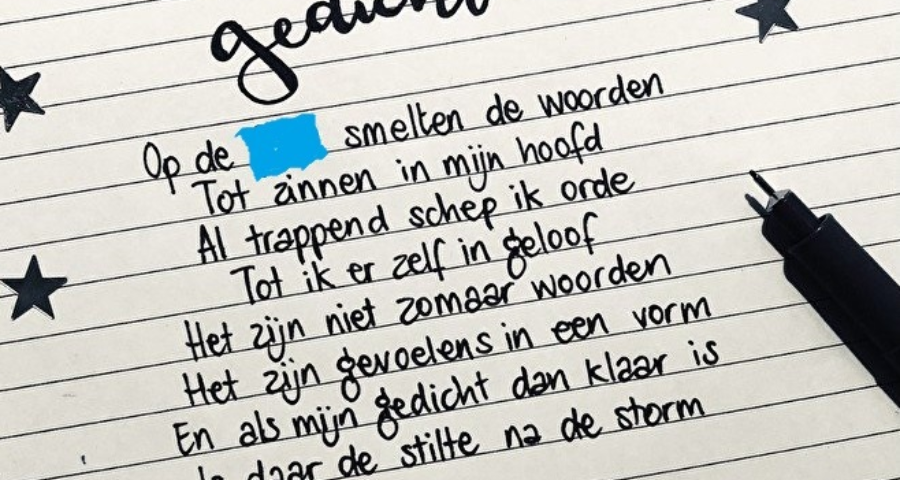 gedicht
Op de smelten de woorden
Tot zinnen in mijn hoofd
Al trappend schep ik orde
Tot ik er zelf in geloof
Het zijn niet zomaar woorden
Het zijn gevoelens in een vorm
En als mijn gedicht dan klaar is
Is daar de stilte na de storm